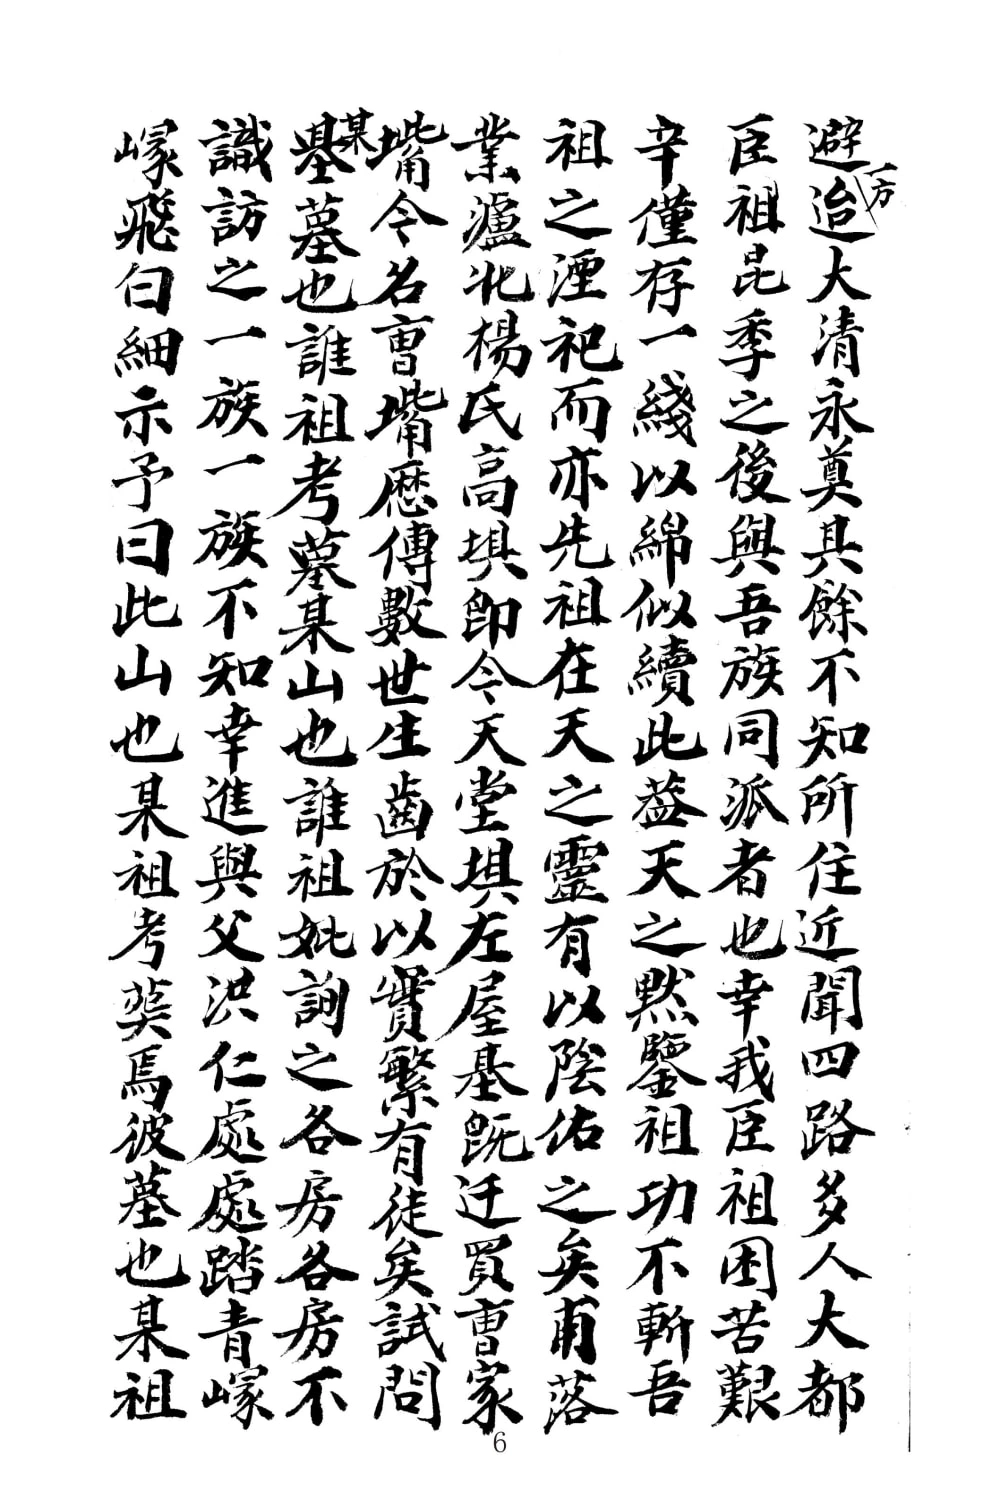 避一方迨大清永奠其餘不知所住近聞四路多人大都
臣祖昆季之後與吾族同派者也幸我臣祖困苦艱
辛僅存一綫以綿似續此蓋天之默鑒祖功不斬吾
祖之湮祀而亦先祖在天之靈有以陰佑之矣甫落
業瀘北楊氏高埧即今天堂埧左屋基既迁買曺家
嘴今名曺嘴歷傳數世生齒於以實繁有徒矣試問
某墓也誰祖考墓某山也誰祖妣詢之各房各房不
識訪之一族一族不知幸進與父洪仁處處踏青塚
塚飛白細示予曰此山也某祖考葬焉彼墓也某祖
6